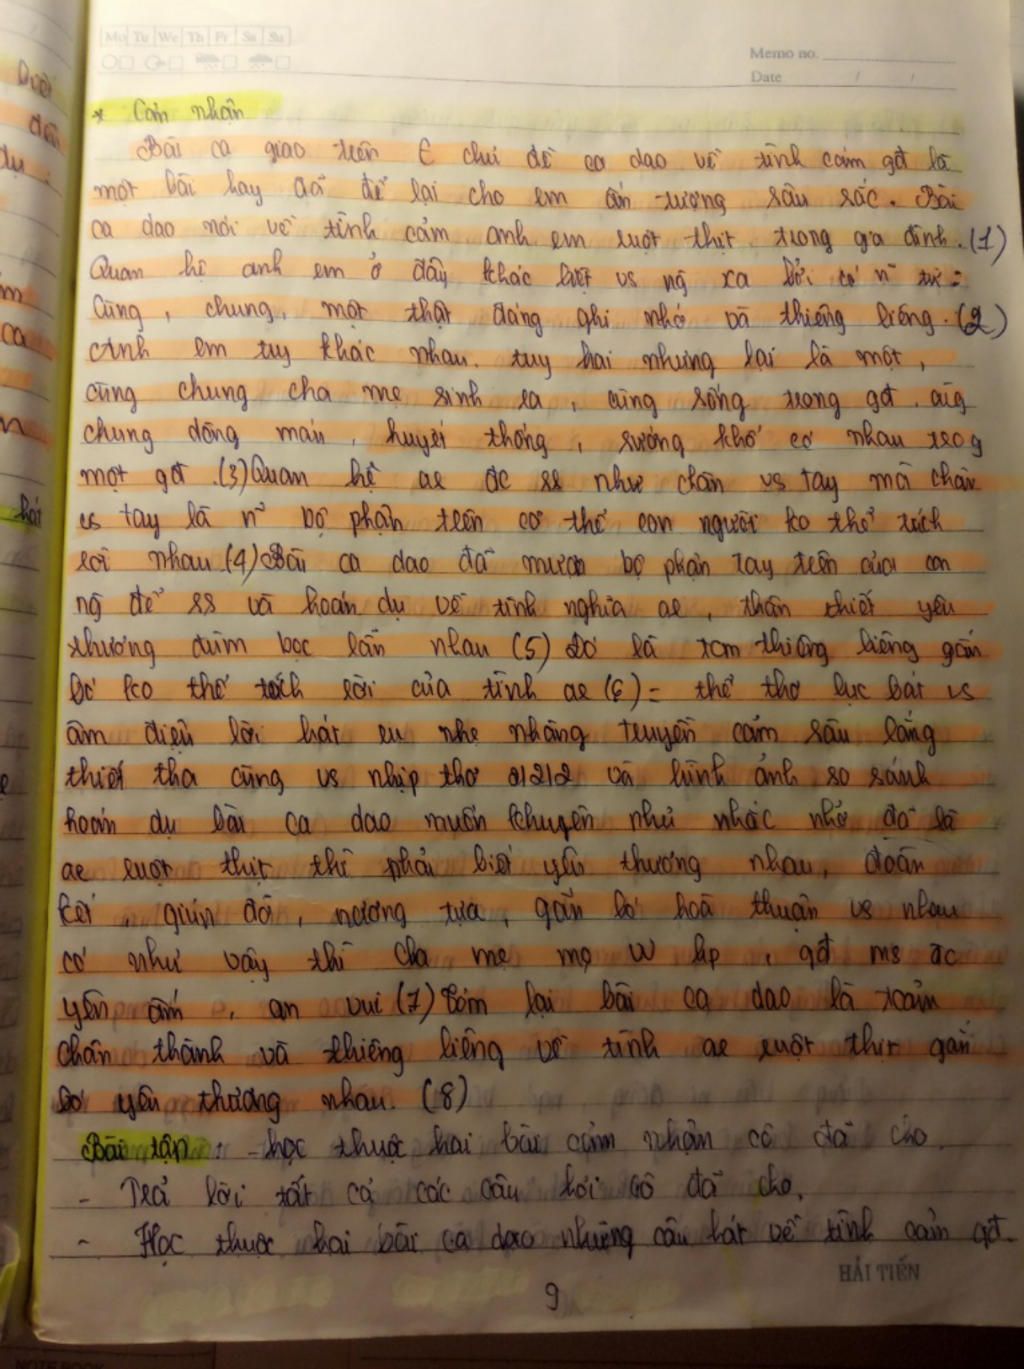 Mo Tu We Th Fr Sa Su
Memo no.
Date / /
* Cảm nhận
Bài ca giao trên E chủ đề ca dao về tình cảm gđ là
một bài hay đã để lại cho em ấn tượng sâu sắc. Bài
ca dao nói về tình cảm anh em ruột thịt trong gia đình. (1)
Quan hệ anh em ở đây khác biệt vs ng xa bởi có n~ từ:
Cùng, chung, một thật đáng ghi nhớ và thiêng liêng. (2)
Anh em tuy khác nhau. tuy hai nhưng lại là một,
cùng chung cha mẹ sinh ra, cùng sống trong gđ. cùg
chung dòng máu, huyết thống, sướng khổ có nhau trog
một gđ. (3) Quan hệ ae đc ss như chân vs tay mà chân
vs tay là n~ bộ phận trên cơ thể con người ko thể tách
rời nhau. (4) Bài ca dao đã mượn bộ phận tay trên của con
ng để ss và hoán dụ về tình nghĩa ae, thân thiết yêu
thương đùm bọc lẫn nhau (5) Đó là tcm thiêng liêng gắn
bó ko thể tách rời của tình ae (6) = thể thơ lục bát vs
âm điệu lời hát ru nhẹ nhàng truyền cảm sâu lắng
thiết tha cùng vs nhịp thơ 2/2/2 và hình ảnh so sánh
hoán dụ bài ca dao muốn khuyên nhủ nhắc nhở đó là
ae ruột thịt thì phải biết yêu thương nhau, đoàn
kết, giúp đỡ, nương tựa, gắn bó hoà thuận vs nhau
có như vậy thì cha mẹ mọ w lp, gđ ms đc
yên ấm, an vui (7) Tóm lại bài ca dao là tcảm
chân thành và thiêng liêng về tình ae ruột thịt gắn
bó yêu thương nhau. (8)
Bài tập: - học thuộc hai bài cảm nhận cô đã cho.
- Trả lời tất cả các câu hỏi cô đã cho.
- Học thuộc hai bài ca dao những câu hát về tình cảm gđ.
HẢI TIẾN
9